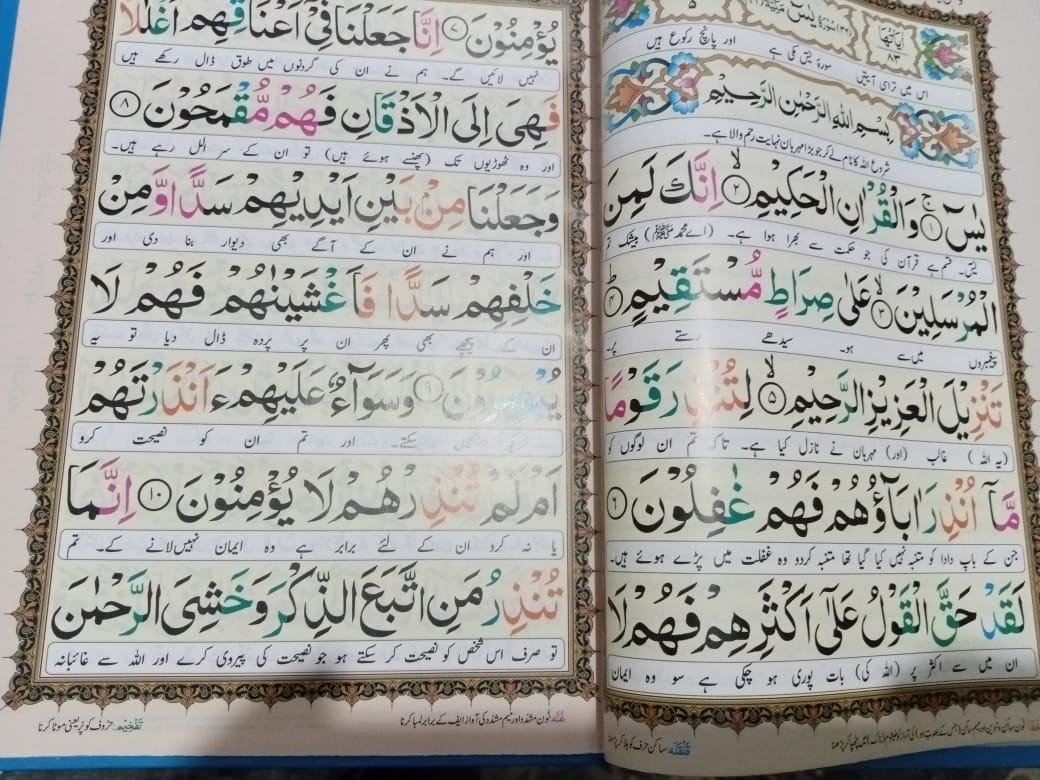 اٰیَاتُهَا
۸۳
اس میں تراسی آیتیں سورۂ یٰسٓ مکی ہے اور پانچ رکوع ہیں
بِسْمِ اللهِ الرَّحْمٰنِ الرَّحِیْمِ
شروع اللہ کا نام لے کر جو بڑا مہربان نہایت رحم والا ہے۔
یٰسٓ ۚ﴿۱﴾ وَالْقُرْاٰنِ الْحَكِیْمِ ۙ﴿۲﴾ اِنَّكَ لَمِنَ
یٰس۔ قسم ہے قرآن کی جو حکمت سے بھرا ہوا ہے۔ (اے محمد ﷺ) بیشک تم
الْمُرْسَلِیْنَ ۙ﴿۳﴾ عَلٰی صِرَاطٍ مُّسْتَقِیْمٍ ؕ﴿۴﴾
پیغمبروں میں سے ہو۔ سیدھے رستے پر۔
تَنْزِیْلَ الْعَزِیْزِ الرَّحِیْمِ ۙ﴿۵﴾ لِتُنْذِرَ قَوْمًا
(یہ اللہ) غالب (اور) مہربان نے نازل کیا ہے۔ تاکہ تم ان لوگوں کو
مَّاۤ اُنْذِرَ اٰبَآؤُهُمْ فَهُمْ غٰفِلُوْنَ ﴿۶﴾
جن کے باپ دادا کو متنبہ نہیں کیا گیا تھا متنبہ کردو وہ غفلت میں پڑے ہوئے ہیں۔
لَقَدْ حَقَّ الْقَوْلُ عَلٰۤی اَكْثَرِهِمْ فَهُمْ لَا
ان میں سے اکثر پر (اللہ کی) بات پوری ہو چکی ہے سو وہ ایمان
قَلْقَلَه: ساکن حرف کو ہلا کر پڑھنا
یُؤْمِنُوْنَ ﴿۷﴾ اِنَّا جَعَلْنَا فِیْۤ اَعْنَاقِهِمْ اَغْلٰلًا
نہیں لائیں گے۔ ہم نے ان کی گردنوں میں طوق ڈال رکھے ہیں
فَهِیَ اِلَی الْاَذْقَانِ فَهُمْ مُّقْمَحُوْنَ ﴿۸﴾
اور وہ ٹھوڑیوں تک (پھنسے ہوئے ہیں) تو ان کے سر الل رہے ہیں۔
وَجَعَلْنَا مِنْۢ بَیْنِ اَیْدِیْهِمْ سَدًّا وَّمِنْ
اور ہم نے ان کے آگے بھی دیوار بنا دی اور
خَلْفِهِمْ سَدًّا فَاَغْشَیْنٰهُمْ فَهُمْ لَا
ان کے پیچھے بھی پھر ان پر پردہ ڈال دیا تو یہ
یُبْصِرُوْنَ ﴿۹﴾ وَسَوَآءٌ عَلَیْهِمْ ءَاَنْذَرْتَهُمْ
سکتے۔ اور تم ان کو نصیحت کرو
اَمْ لَمْ تُنْذِرْهُمْ لَا یُؤْمِنُوْنَ ﴿۱۰﴾ اِنَّمَا
یا نہ کرو ان کے لئے برابر ہے وہ ایمان نہیں لانے کے۔ تم
تُنْذِرُ مَنِ اتَّبَعَ الذِّكْرَ وَخَشِیَ الرَّحْمٰنَ
تو صرف اس شخص کو نصیحت کر سکتے ہو جو نصیحت کی پیروی کرے اور اللہ سے غائبانہ
غُنَّه: نون مشدد اور میم مشدد کی آواز ایف کے برابر لمبا کرنا
تَفْخِیْم: حروف کو پُر یعنی موٹا کرنا